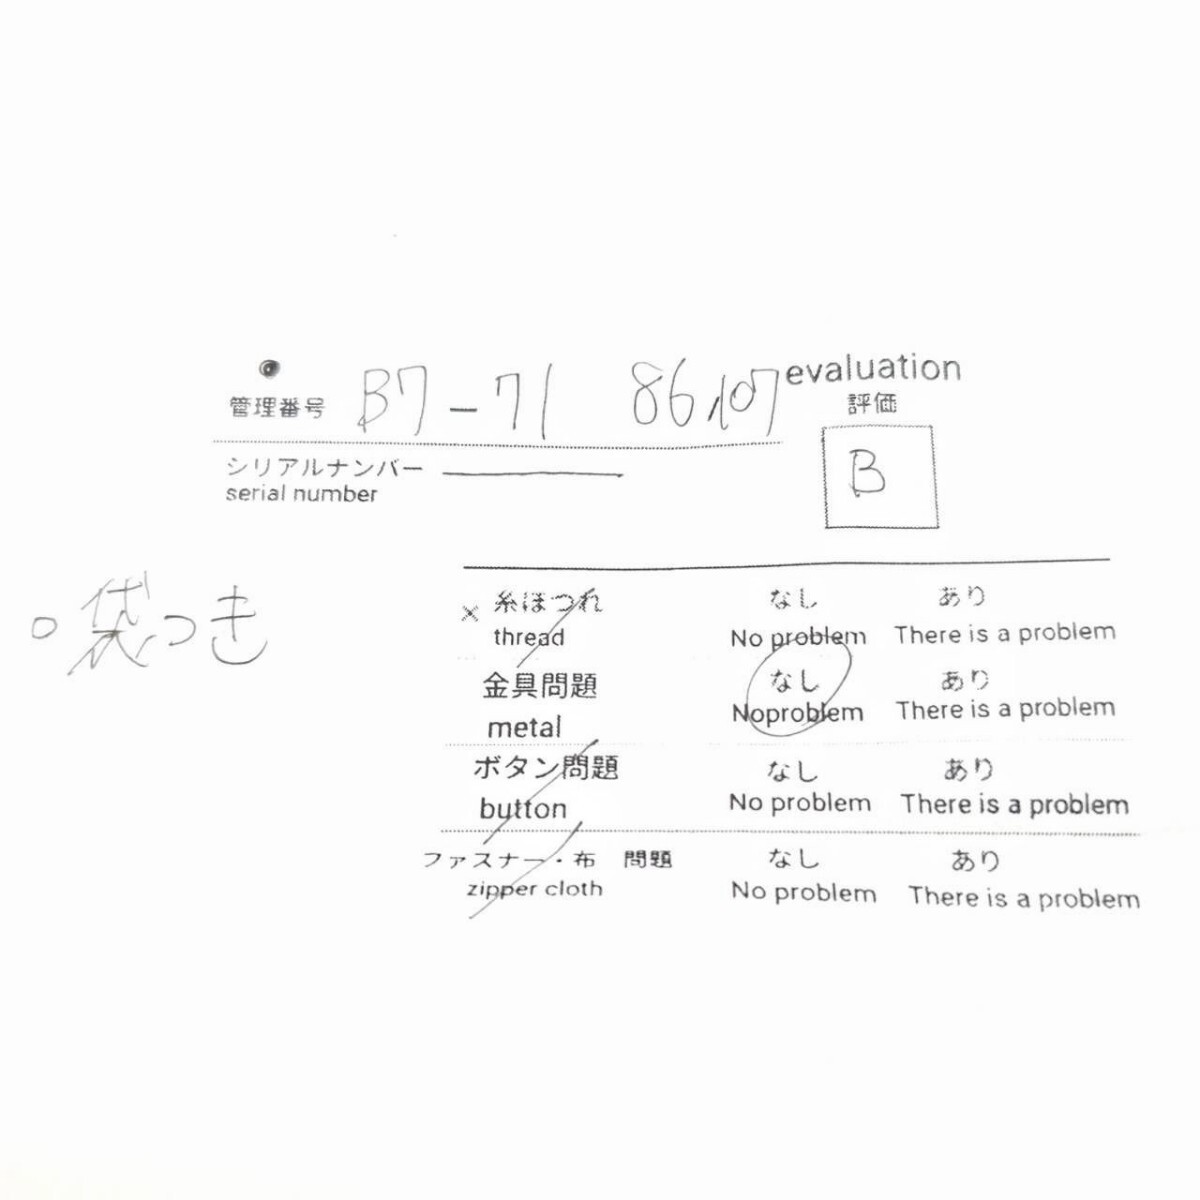 管理番号 B7-71 86,107
evaluation
評価
B
シリアルナンバー
serial number
○袋つき
× 糸ほつれ なし あり
thread No problem There is a problem
金具問題 なし あり
metal Noproblem There is a problem
ボタン問題 なし あり
button No problem There is a problem
ファスナー・布 問題 なし あり
zipper cloth No problem There is a problem